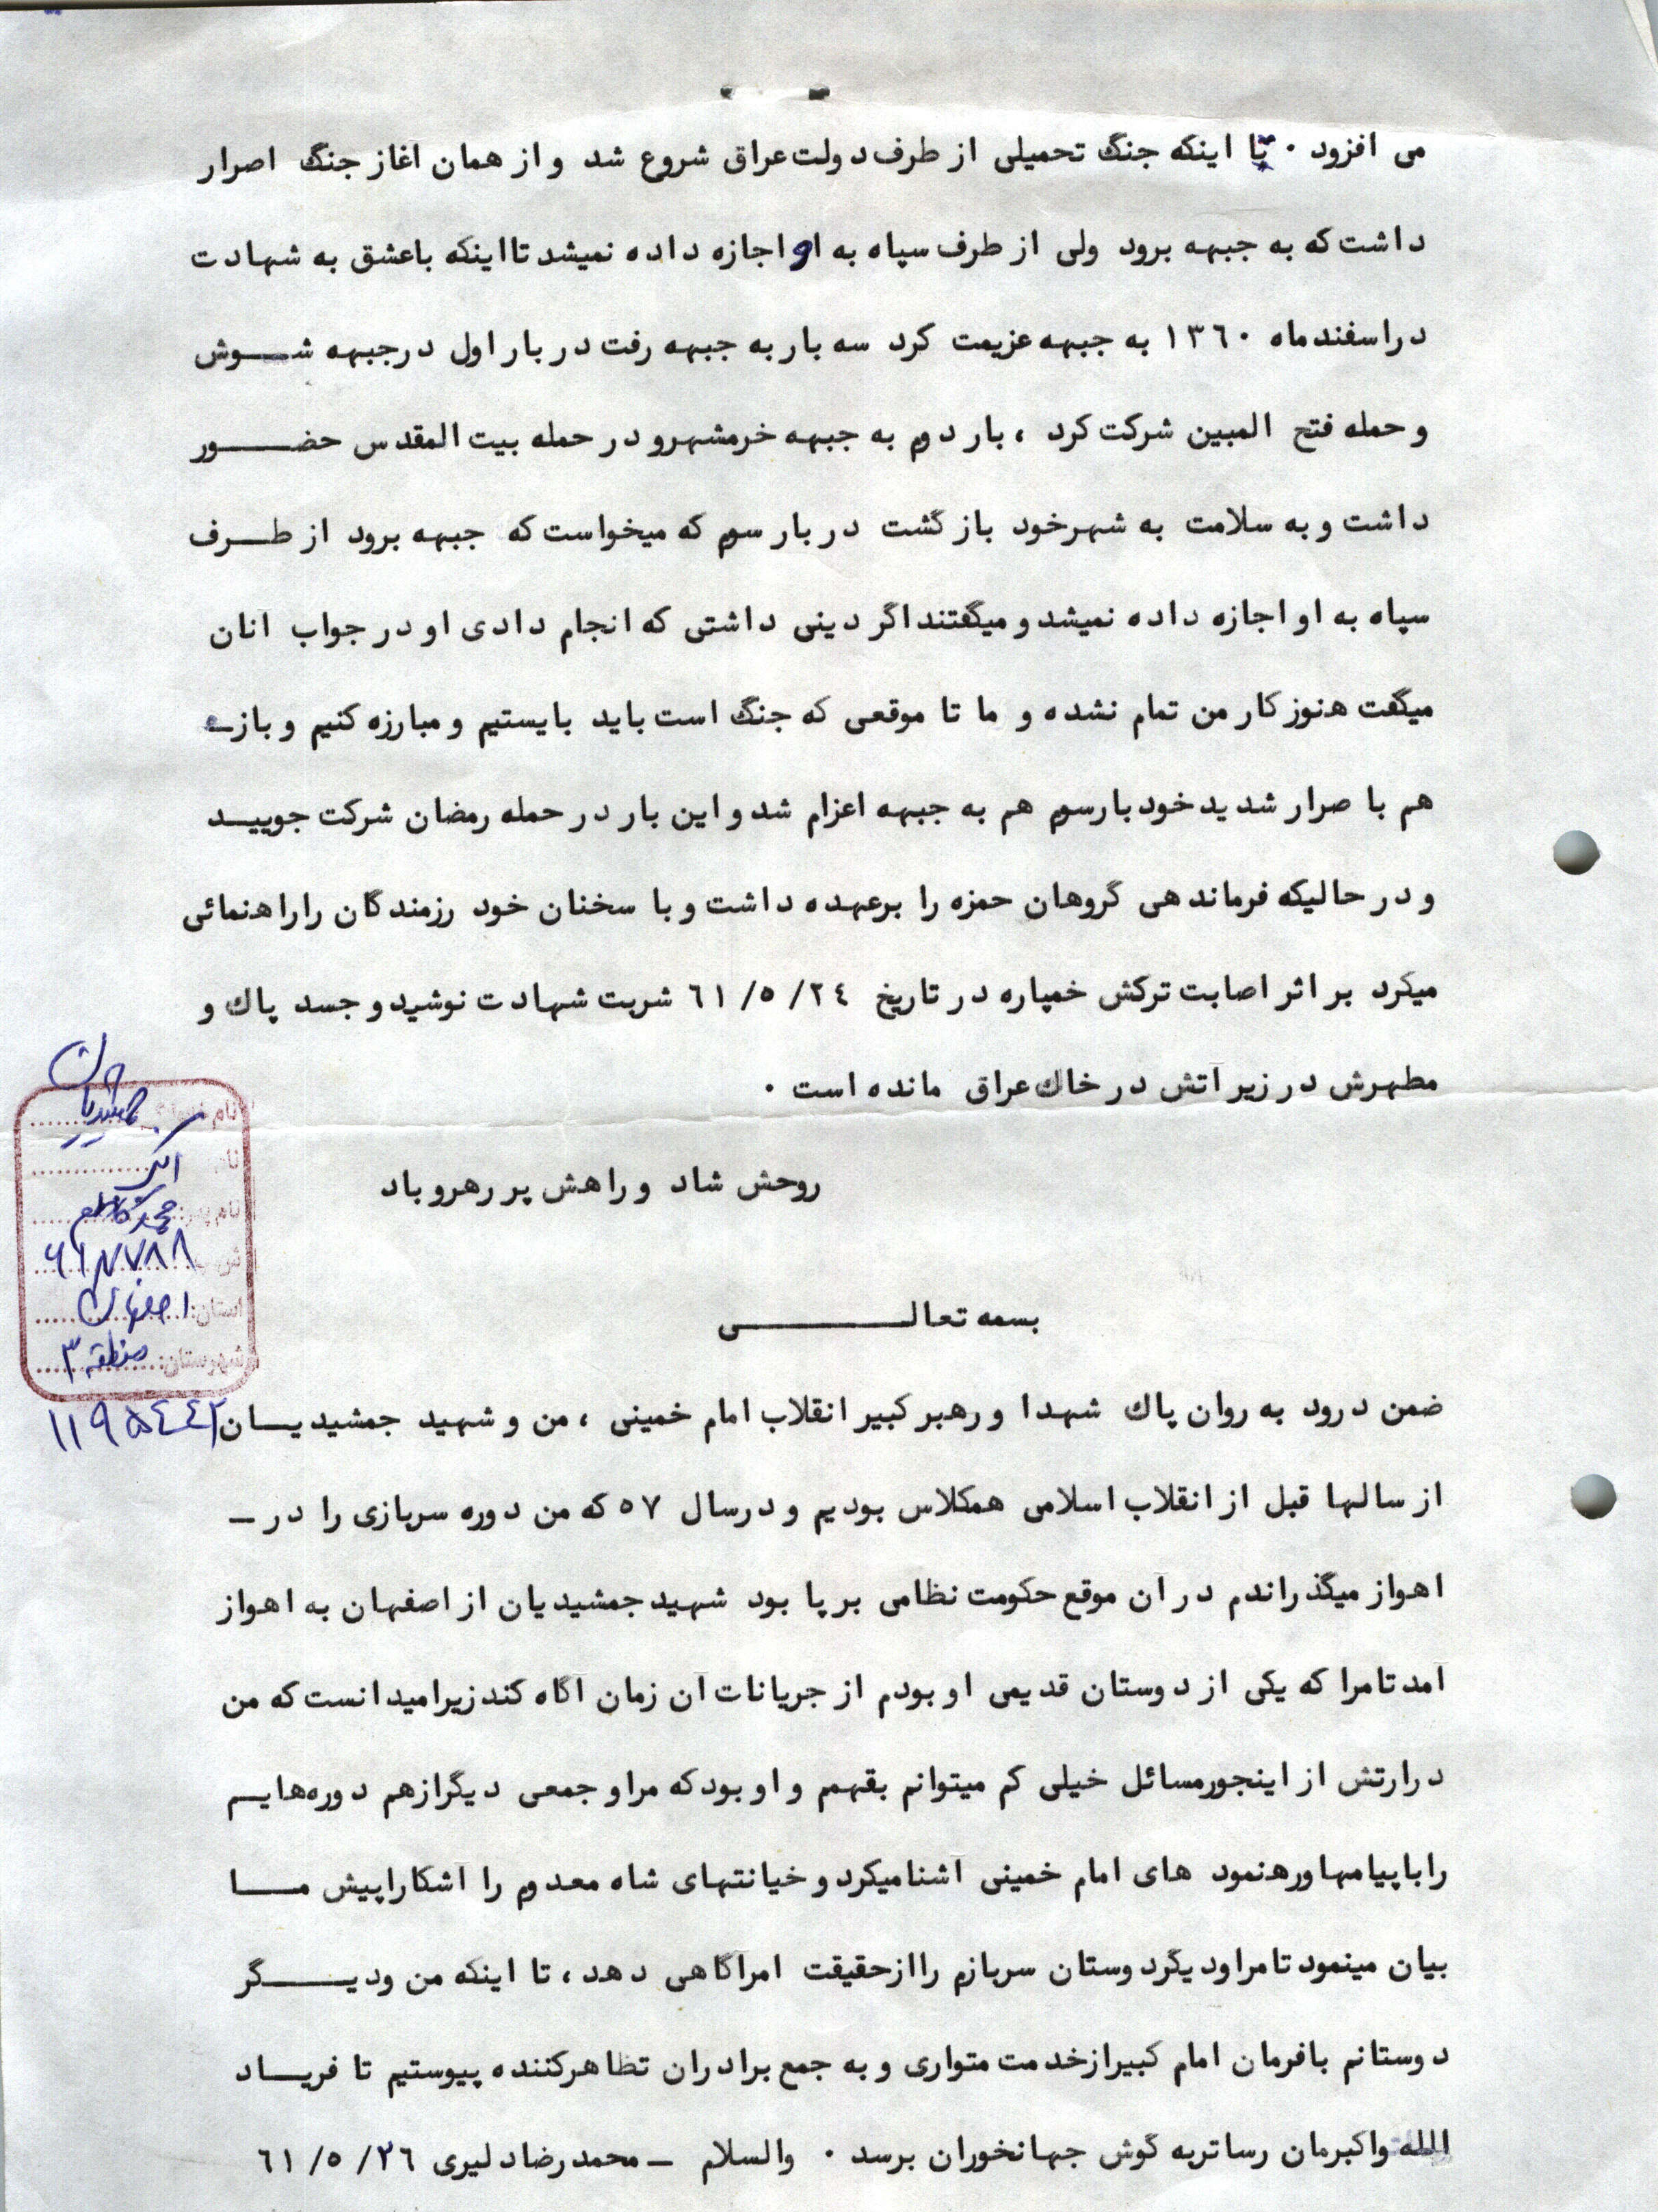 می افزود ۰ تا اینکه جنگ تحمیلی از طرف دولت عراق شروع شد و از همان اغاز جنگ اصرار
داشت که به جبهه برود ولی از طرف سپاه به او اجازه داده نمیشد تا اینکه باعشق به شهادت
در اسفند ماه ۱۳٦۰ به جبهه عزیمت کرد سه بار به جبهه رفت در بار اول در جبهه شـــوش
و حمله فتح المبین شرکت کرد ، بار دوم به جبهه خرمشهر و در حمله بیت المقدس حضـــــور
داشت و به سلامت به شهر خود باز گشت در بار سوم که میخواست که جبهه برود از طـــرف
سپاه به او اجازه داده نمیشد و میگفتند اگر دینی داشتی که انجام دادی او در جواب انان
میگفت هنوز کار من تمام نشده و ما تا موقعی که جنگ است باید بایستیم و مبارزه کنیم و بازــ
هم با صرار شدید خود بار سوم هم به جبهه اعزام شد و این بار در حمله رمضان شرکت جوییــد
و در حالیکه فرماندهی گروهان حمزه را برعهده داشت و با سخنان خود رزمندگان را راهنمائی
میکرد بر اثر اصابت ترکش خمپاره در تاریخ ۲٤/ ۵/ ٦۱ شربت شهادت نوشید و جسد پاك و
مطهرش در زیر اتش در خاك عراق مانده است ۰
روحش شاد و راهش پر رهرو باد
نام خانوادگی: جمشیدیان
نام: اکبر
نام پدر: محمدکاظم
استان: اصفهان
شهرستان: منطقه ۳
۱۱۹۵٤٤۲
بسمه تعالـــــــــی
ضمن درود به روان پاك شهدا و رهبر کبیر انقلاب امام خمینی ، من و شهید جمشیدیــان
از سالها قبل از انقلاب اسلامی همکلاس بودیم و درسال ۵۷ که من دوره سربازی را در ــ
اهواز میگذراندم در ان موقع حکومت نظامی بر پا بود شهید جمشیدیان از اصفهان به اهواز
امد تا مرا که یکی از دوستان قدیمی او بودم از جریانات ان زمان اگاه کند زیرا میدانست که من
در ارتش از اینجور مسائل خیلی کم میتوانم بفهمم و او بود که مرا و جمعی دیگر از هم دوره‌هایــم
را با پیامها و رهنمود های امام خمینی اشنا میکرد و خیانتهای شاه معدوم را اشکارا پیش مـــا
بیان مینمود تا مرا و دیگر دوستان سربازم را از حقیقت امر اگاهی دهد ، تا اینکه من و دیـــــگر
دوستانم بافرمان امام کبیر از خدمت متواری و به جمع برادران تظاهر کننده پیوستیم تا فریــاد
الله واکبرمان رساتر به گوش جهانخوران برسد ۰ والسلام ــ محمد رضا دلیری ۲٦/ ۵/ ٦۱